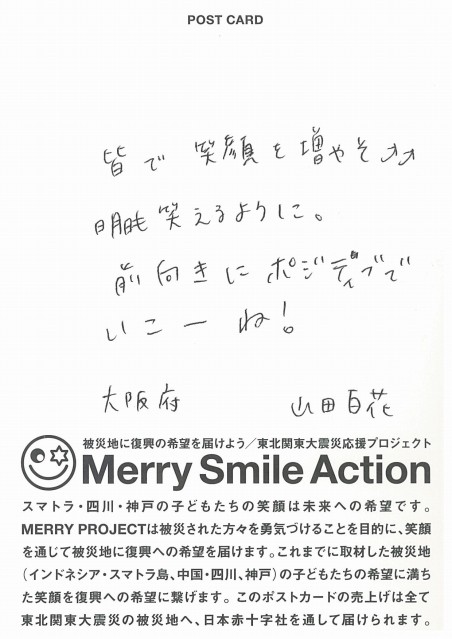 POST CARD
皆で 笑顔を増やそ↗↗
明日も笑えるように。
前向きにポジティブで
いこーね!
大阪府 山田百花
被災地に復興の希望を届けよう/東北関東大震災応援プロジェクト
Merry Smile Action
スマトラ・四川・神戸の子どもたちの笑顔は未来への希望です。
MERRY PROJECTは被災された方々を勇気づけることを目的に、笑顔
を通じて被災地に復興への希望を届けます。これまでに取材した被災地
(インドネシア・スマトラ島、中国・四川、神戸)の子どもたちの希望に満ち
た笑顔を復興への希望に繋げます。このポストカードの売上げは全て
東北関東大震災の被災地へ、日本赤十字社を通して届けられます。